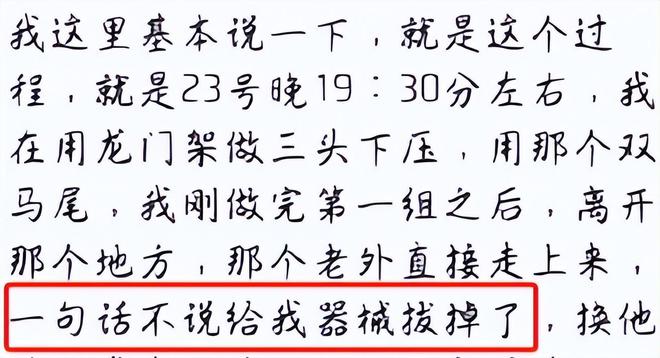 我这里基本说一下，就是这个过
程，就是23号晚19：30分左右，我
在用龙门架做三头下压，用那个双
马尾，我刚做完第一组之后，离开
那个地方，那个老外直接走上来，
一句话不说给我器械拔掉了，换他